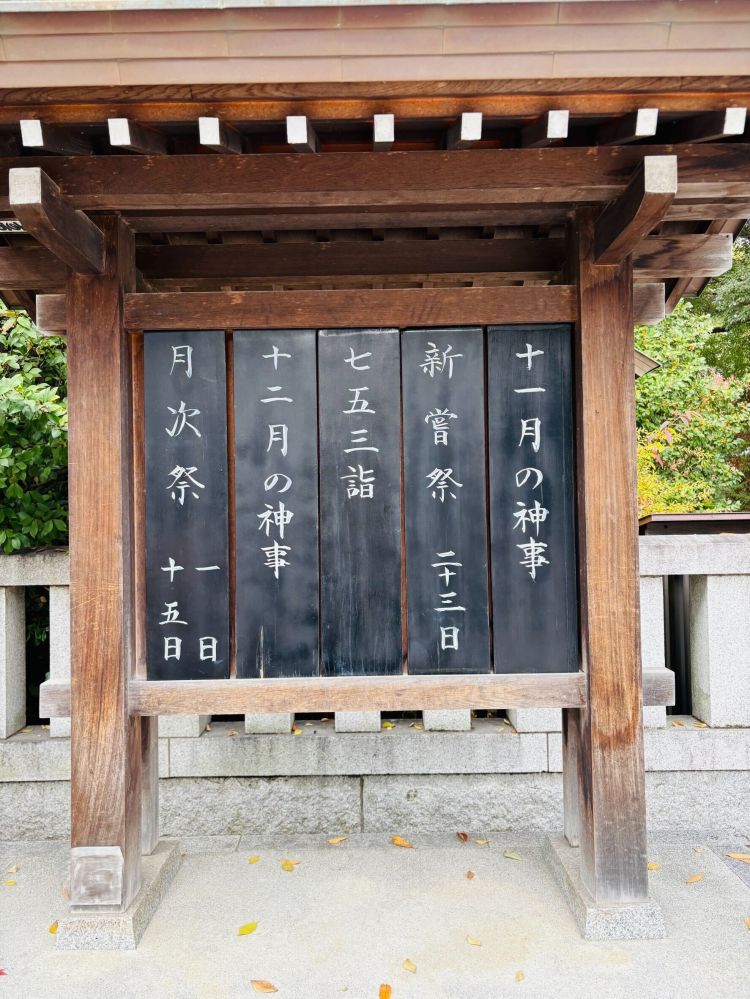 十一月の神事
新嘗祭 二十三日
七五三詣
十二月の神事
月次祭 一日
十五日